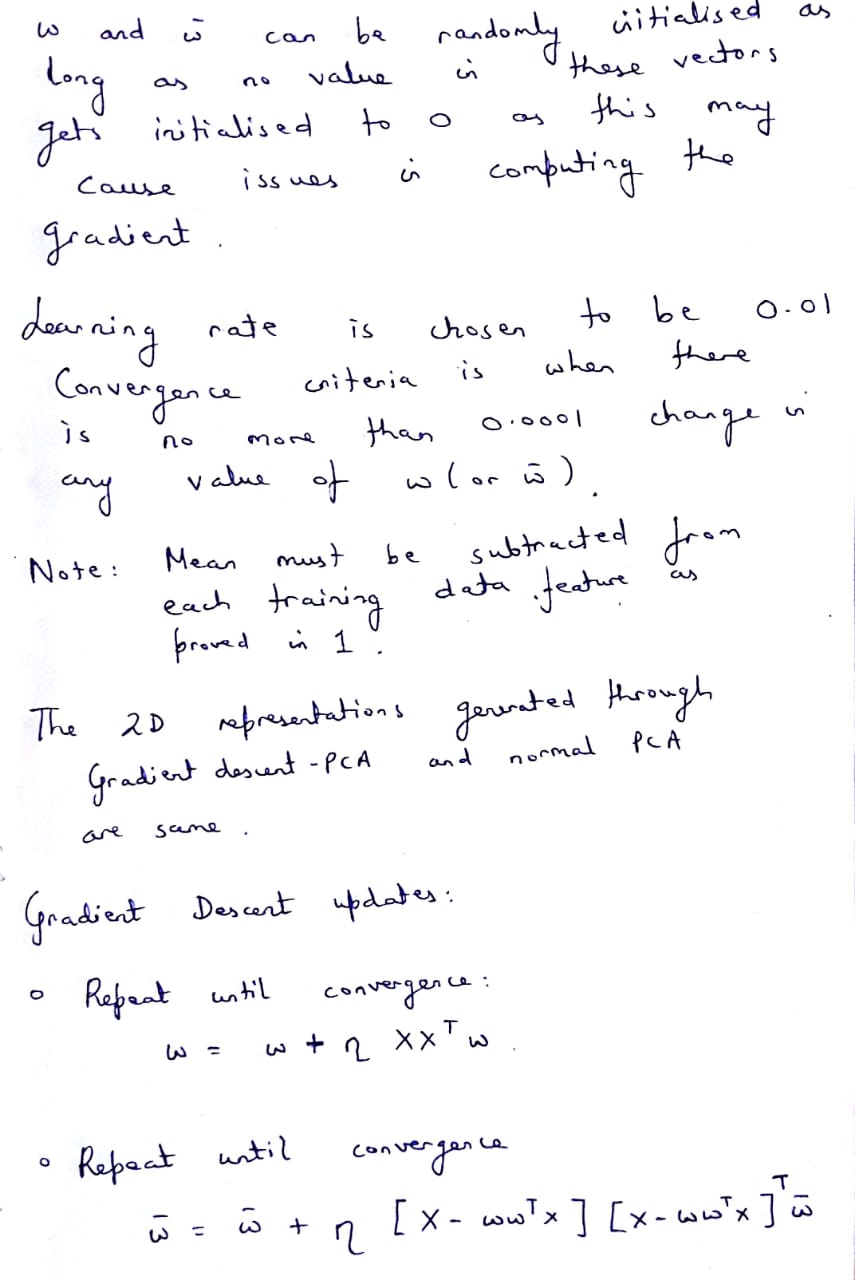 w and w̄ can be randomly initialised as
long as no value in these vectors
gets initialised to 0 as this may
cause issues in computing the
gradient.
Learning rate is chosen to be 0.01
Convergence criteria is when there
is no more than 0.0001 change in
any value of w (or w̄).
Note: Mean must be subtracted from
each training data feature as
proved in 1.
The 2D representations generated through
Gradient descent - PCA and normal PCA
are same.
Gradient Descent updates:
o Repeat until convergence:
w = w + η XXᵀw.
o Repeat until convergence
w̄ = w̄ + η [X - wwᵀx] [x - wwᵀx]ᵀ w̄